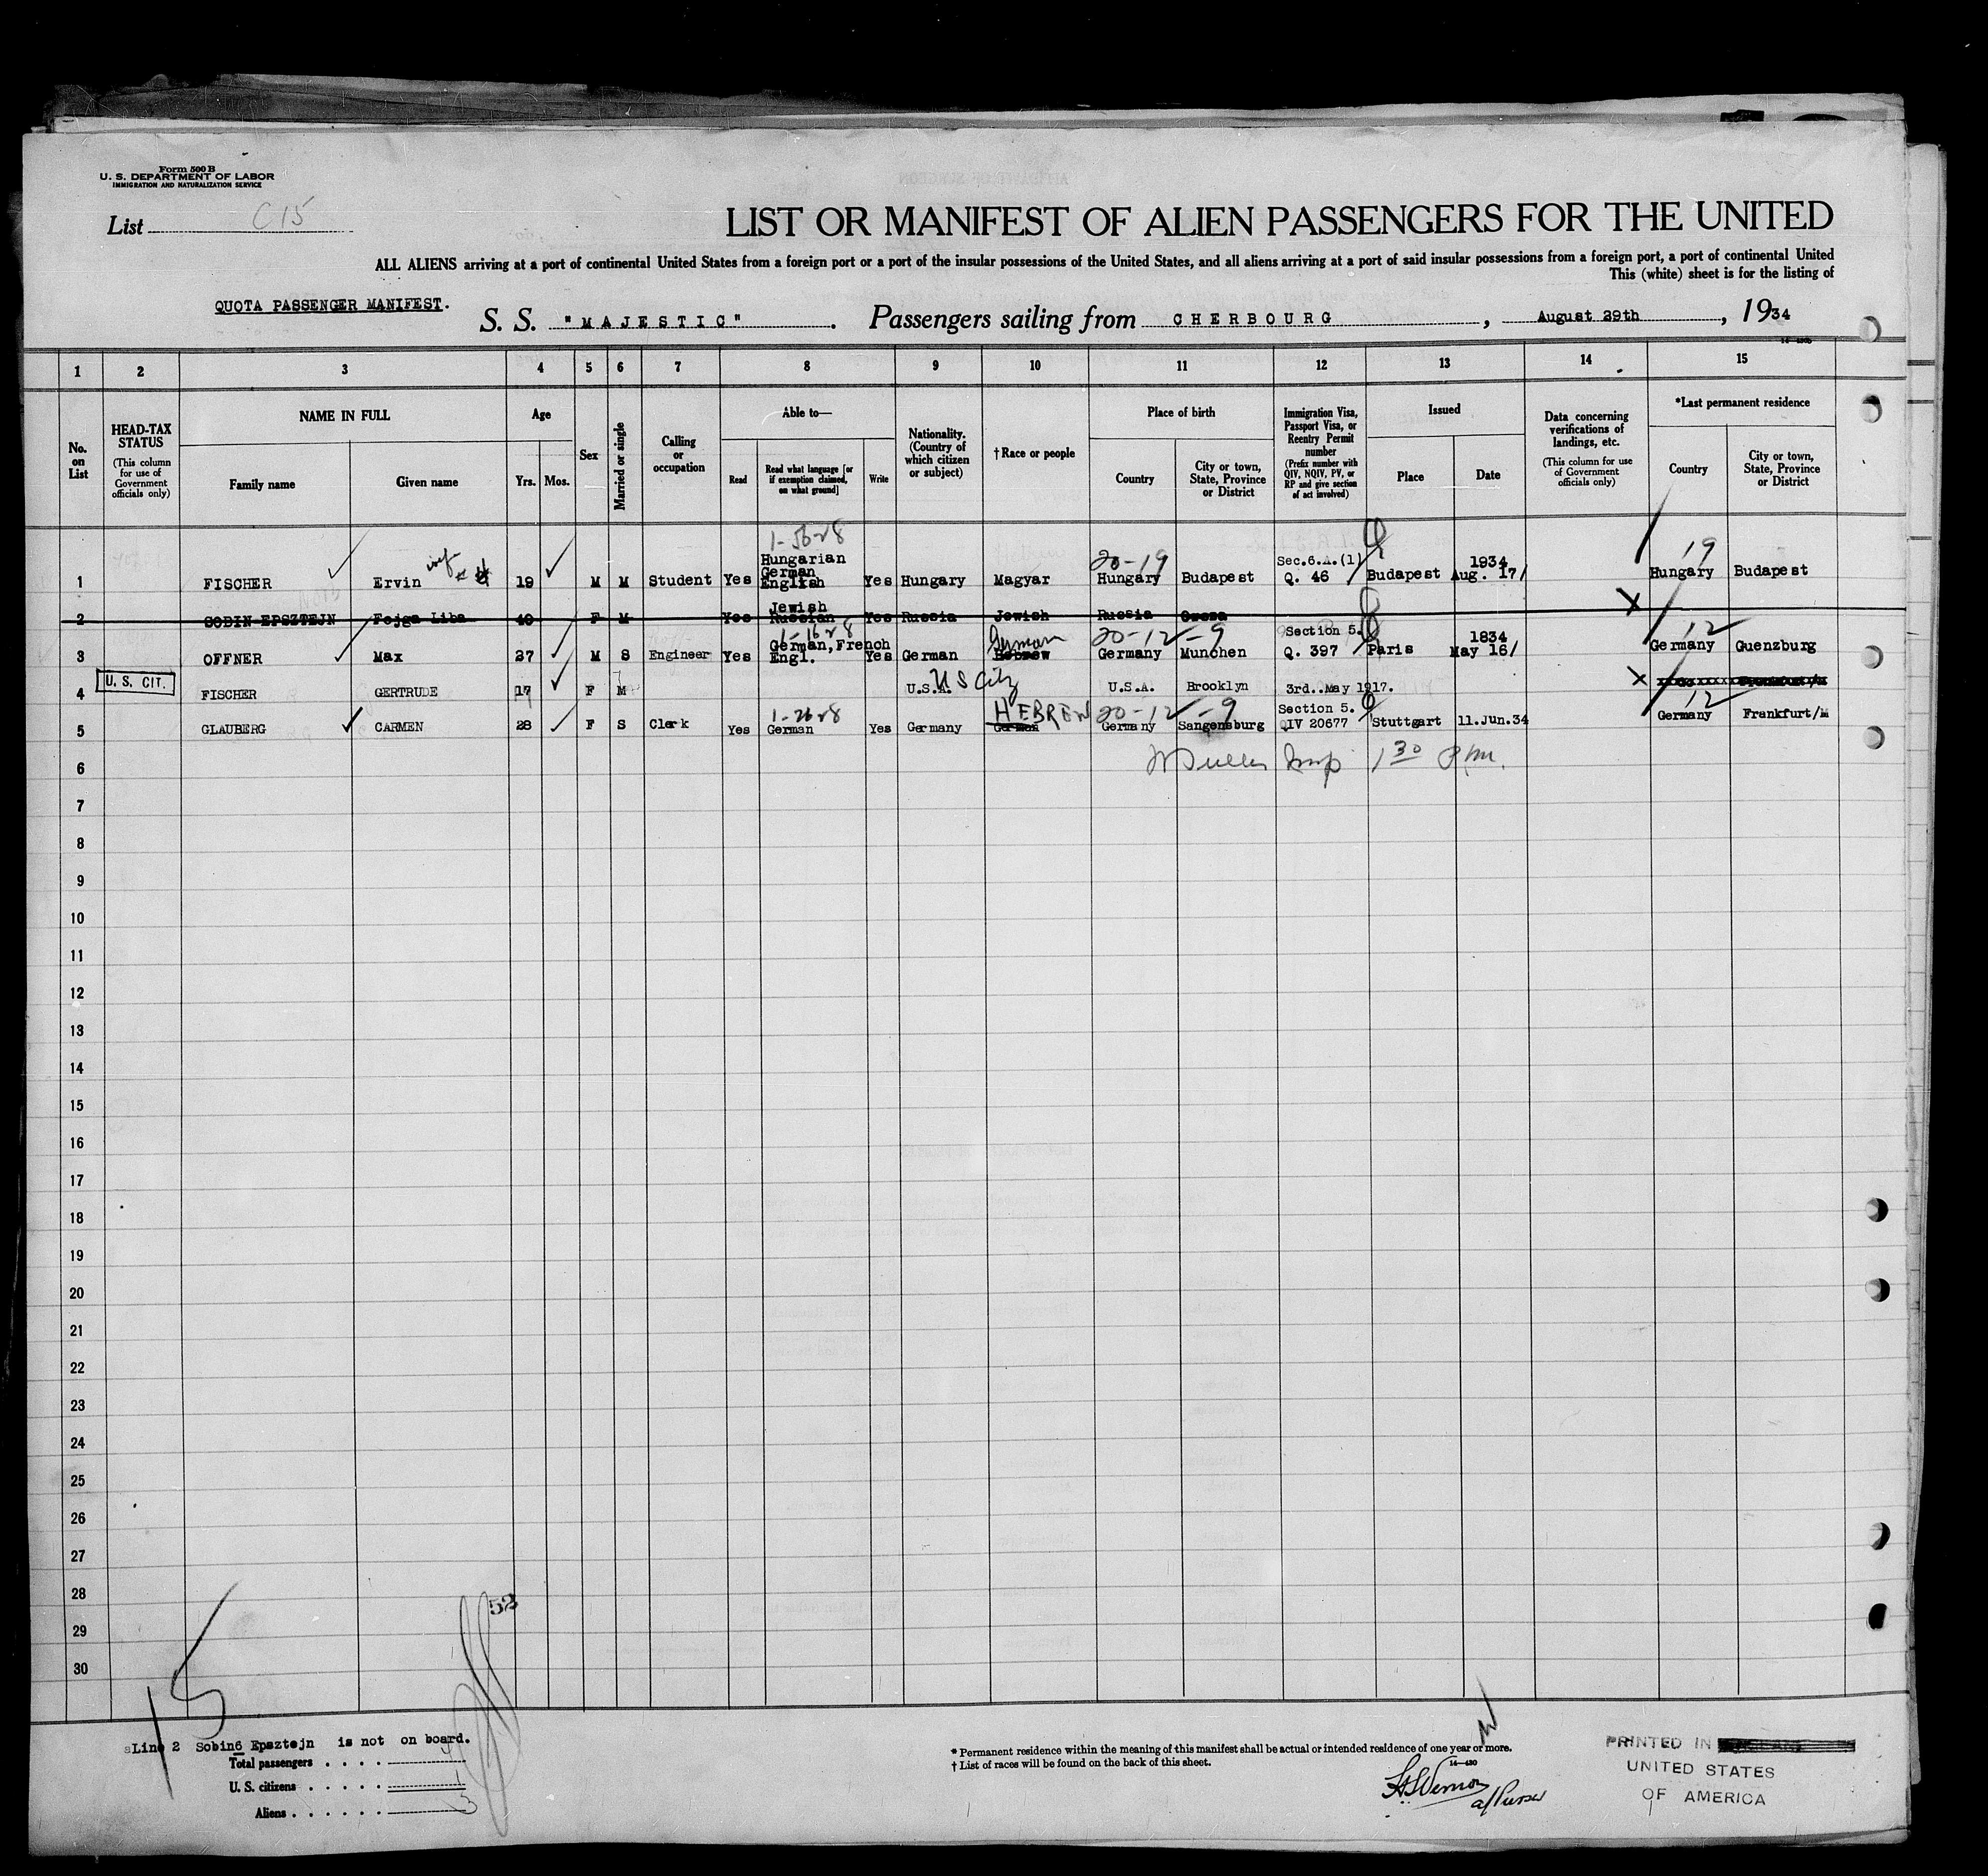 Form 500 B
U. S. DEPARTMENT OF LABOR
IMMIGRATION AND NATURALIZATION SERVICE
List C 15
LIST OR MANIFEST OF ALIEN PASSENGERS FOR THE UNITED
ALL ALIENS arriving at a port of continental United States from a foreign port or a port of the insular possessions of the United States, and all aliens arriving at a port of said insular possessions from a foreign port, a port of continental United
This (white) sheet is for the listing of
QUOTA PASSENGER MANIFEST.
S. S. "MAJESTIC" . Passengers sailing from CHERBOURG , August 29th , 1934
1 2 3 4 5 6 7 8 9 10 11 12 13 14 15
No. on List
HEAD-TAX STATUS
(This column for use of Government officials only)
NAME IN FULL
Family name
Given name
Age
Yrs. Mos.
Sex
Married or single
Calling or occupation
Able to—
Read
Read what language [or if exemption claimed, on what ground]
Write
Nationality. (Country of which citizen or subject)
† Race or people
Place of birth
Country
City or town, State, Province or District
Immigration Visa, Passport Visa, or Reentry Permit number
(Prefix number with QIV, NQIV, PV, or RP and give section of act involved)
Issued
Place
Date
Data concerning verifications of landings, etc.
(This column for use of Government officials only)
*Last permanent residence
Country
City or town, State, Province or District
1-56-28
20-19
19
1 FISCHER Ervin 19 M M Student Yes Hungarian German English Yes Hungary Magyar Hungary Budapest Sec.6.A.(1) Q. 46 Budapest 1934 Aug. 17/ Hungary Budapest
2 SOBIN EPSZTEJN Fejga Liba 40 F M Yes Jewish Russian Yes Russia Jewish Russia
1-16-28
German
20-12-9
12
3 OFFNER Max 27 M S Engineer Yes German, French Engl. Yes German Hebrew Germany Munchen Section 5. Q. 397 Paris 1834 May 16/ Germany Guenzburg
U. S. CIT.
U S City
4 FISCHER GERTRUDE 17 F M U.S.A. U.S.A. Brooklyn 3rd..May 1917.
1-26-28
HEBREW
20-12-9
12
5 GLAUBERG CARMEN 28 F S Clerk Yes German Yes Germany German Germany Sangensburg Section 5. QIV 20677 Stuttgart 11.Jun.34 Germany Frankfurt/M
6 Insp 1 30 P.M.
7
8
9
10
11
12
13
14
15
16
17
18
19
20
21
22
23
24
25
26
27
28
29
30
52
15
Line 2 Sobin6 Epsztejn is not on board.
Total passengers . . . .
U. S. citizens . . . . . 1
Aliens . . . . . . 3
* Permanent residence within the meaning of this manifest shall be actual or intended residence of one year or more.
† List of races will be found on the back of this sheet.
14—430
a/Purser
PRINTED IN
UNITED STATES
OF AMERICA